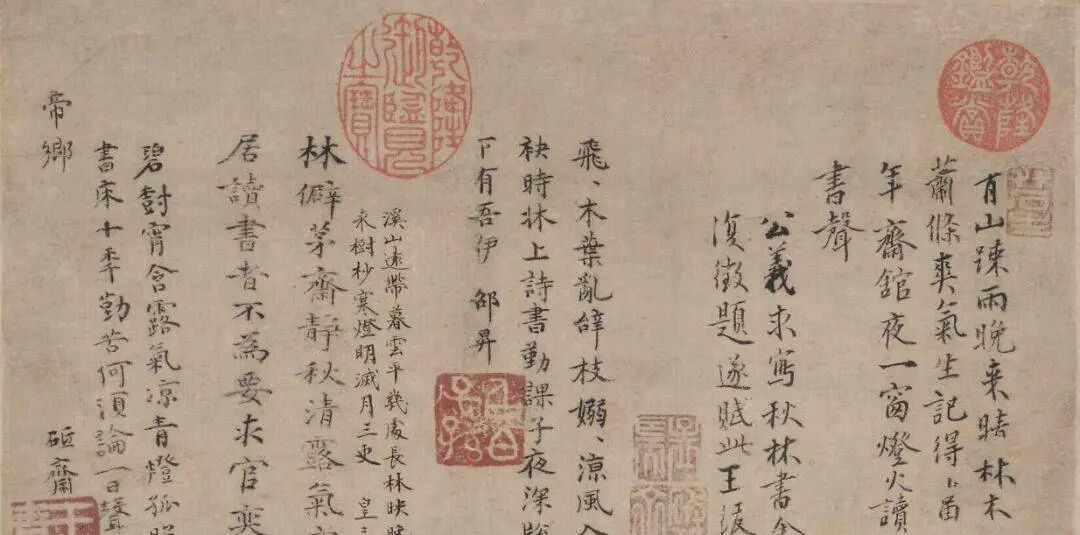 乾隆鑑賞
山踈雨晚来晴林木
蕭條爽氣生記得乙酉
年齋舘夜一窗燈火讀
書聲
公義求寫秋林書舍
復徵題遂賦此王
飛〻木葉亂辭枝嫋〻凉風入
袂時牀上詩書勤課子夜深
下有吾伊 邵昇
乾隆御覽之寶
溪山遠帶暮雲平幾處長林映晚
樹杪寒燈明滅月三更 皇
林僻茅齋靜秋清露氣
居讀書者不為要求官
碧樹宵含露氣凉青燈孤照
書床十年勤苦何須論一日聲
帝鄉 砥齋